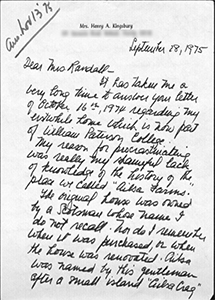 Mrs. Henry A. Kingsbury
Ans Nov 13 '75
September 28, 1975
Dear Mrs Randall -
It has taken me a
very long time to answer your letter
of October 16th, 1974 regarding my
erstwhile home which is now part
of William Paterson College.
My reason for procrastinating
was really my shameful lack
of knowledge of the history of the
place we called "Ailsa Farms".
The original house was owned
by a Scotsman whose name I
do not recall. Nor do I remember
when it was purchased, or when
the house was renovated. Ailsa
was named by this gentleman
after a small island "Ailsa Craig"